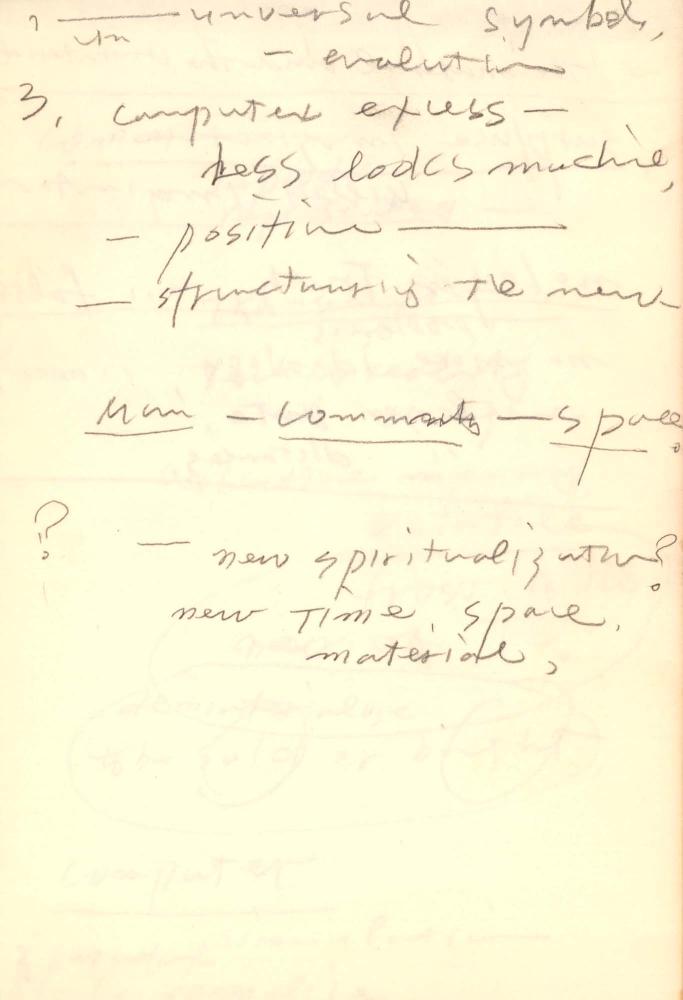 — universal symbols,
— evolution
3. computer excess —
less looks machine,
— positive —
— structuring the new
Man — — space
? — new spiritualization?
new Time, space,
material,